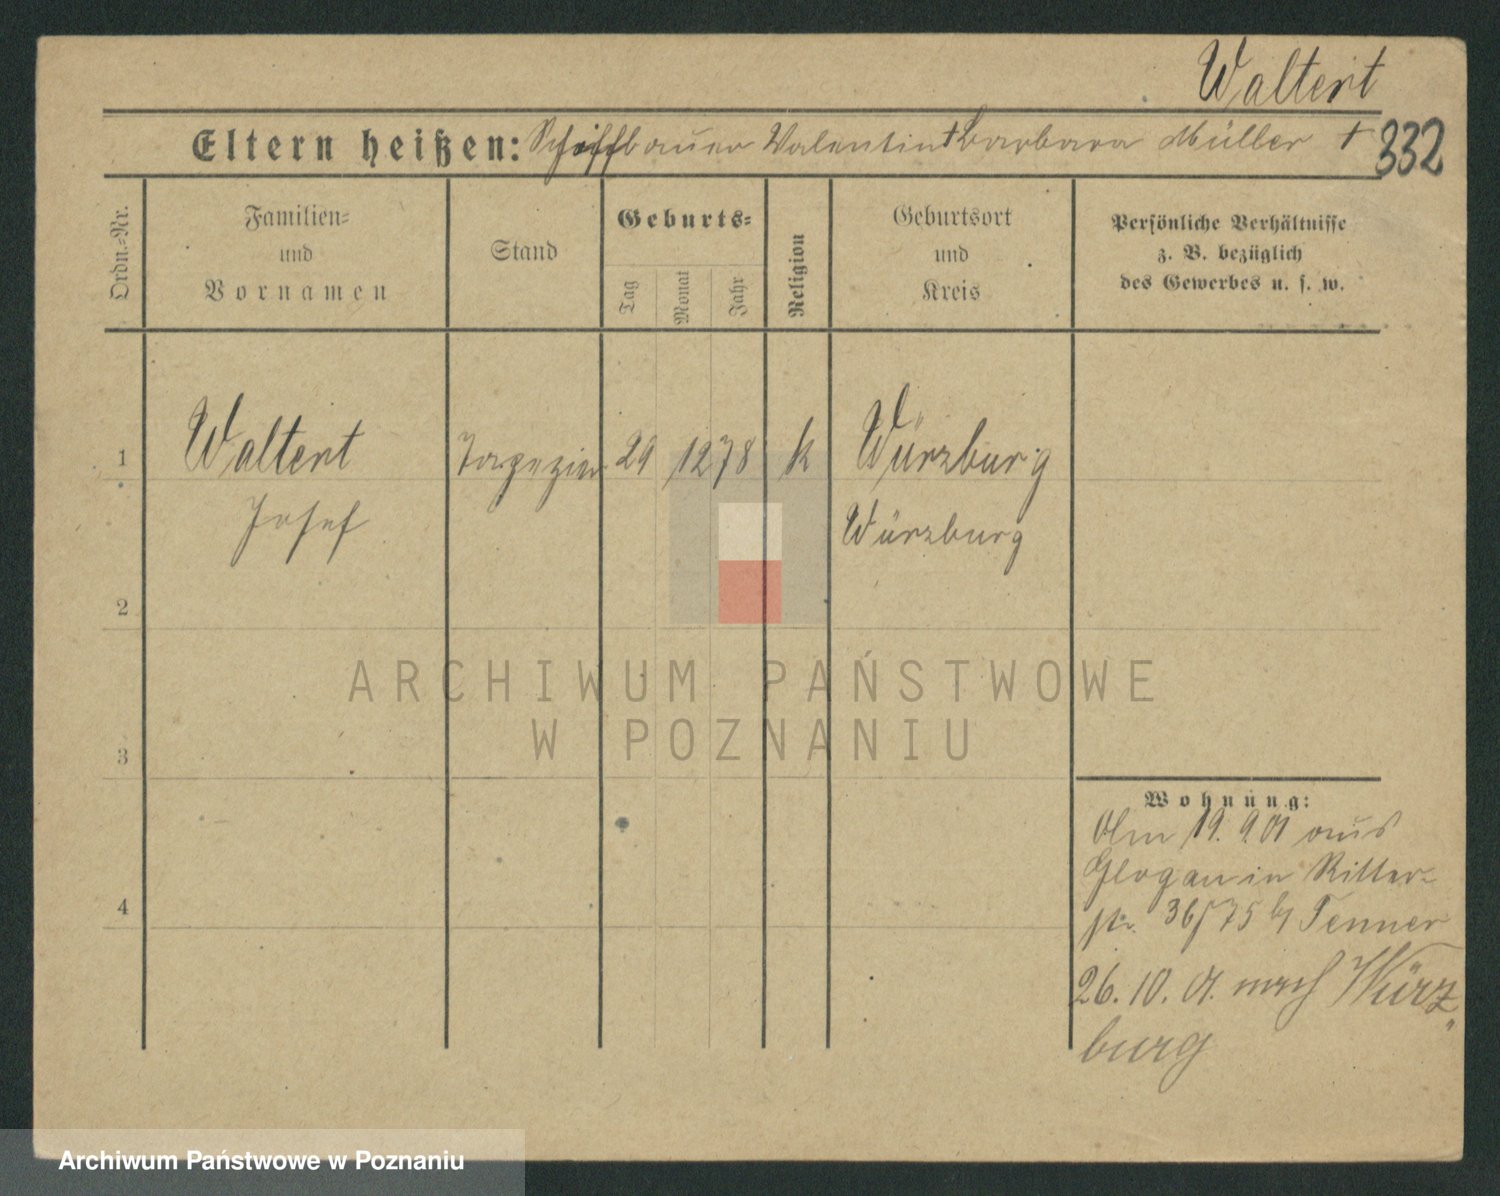 Waltert
Eltern heißen: Schiffbauer Valentin † Barbara Müller † 332
Ordn.-Nr.
Familien-
und
Vornamen
Stand
Geburts-
Tag
Monat
Jahr
Religion
Geburtsort
und
Kreis
Persönliche Verhältnisse
z. B. bezüglich
des Gewerbes u. s. w.
1 Waltert Tapezier 29 12 78 k Würzburg
Josef Würzburg
2
ARCHIWUM PAŃSTWOWE
W POZNANIU
3
4
Wohnung:
Am 19. 9 01 aus
Glogau in Ritter-
str. 36/75 b/ Tenner
26. 10. 01. nach Würz-
burg
Archiwum Państwowe w Poznaniu